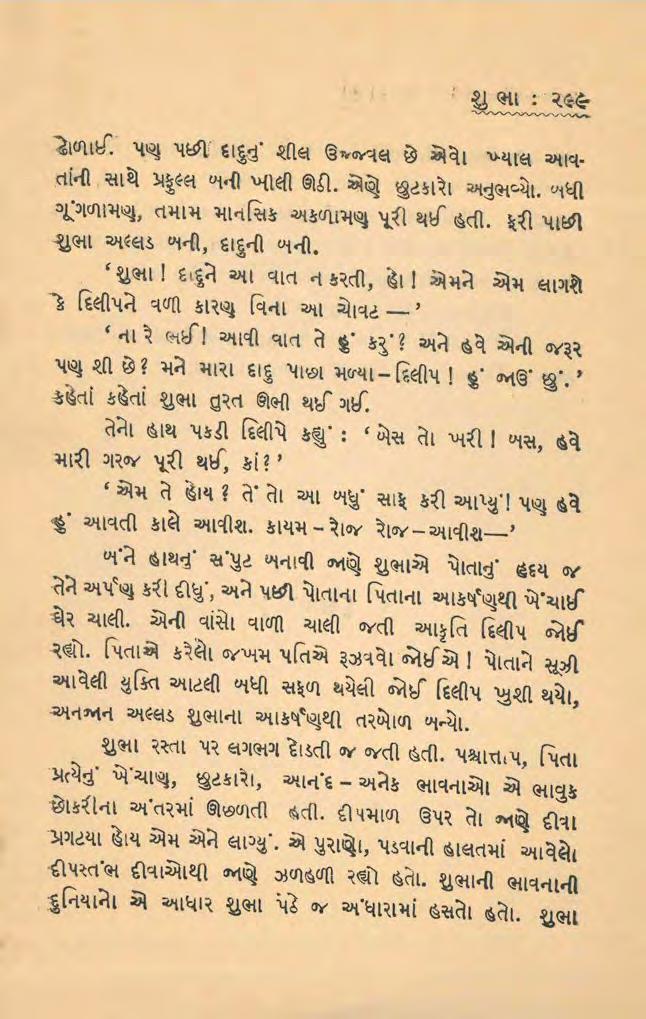 શુભા : ૨૯૯
ઢોળાઈ. પણ પછી દાદુનું શીલ ઉજ્જવલ છે એવો ખ્યાલ આવ-
તાંની સાથે પ્રફુલ્લ બની ખીલી ઊઠી. એણે છુટકારો અનુભવ્યો. બધી
ગૂંગળામણ, તમામ માનસિક અકળામણ પૂરી થઈ હતી. ફરી પાછી
શુભા અલ્લડ બની, દાદુની બની.
‘શુભા ! દાદુને આ વાત ન કરતી, હો ! એમને એમ લાગશે
કે દિલીપને વળી કારણ વિના આ ચોવટ —’
‘ના રે ભઈ ! આવી વાત તે હું કરું? અને હવે એની જરૂર
પણ શી છે? મને મારા દાદુ પાછા મળ્યા – દિલીપ ! હું જાઉં છું.’
કહેતાં કહેતાં શુભા તુરત ઊભી થઈ ગઈ.
તેનો હાથ પકડી દિલીપે કહ્યું : ‘બેસ તો ખરી ! બસ, હવે
મારી ગરજ પૂરી થઈ, કાં?’
‘એમ તે હોય? તેં તો આ બધું સાફ કરી આપ્યું! પણ હવે
હું આવતી કાલે આવીશ. કાયમ – રોજ રોજ – આવીશ—’
બંને હાથનું સંપુટ બનાવી જાણે શુભાએ પોતાનું હૃદય જ
તેને અર્પણ કરી દીધું, અને પછી પોતાના પિતાના આકર્ષણથી ખેંચાઈ
ઘેર ચાલી. એની વાંસો વાળી ચાલી જતી આકૃતિ દિલીપ જોઈ
રહ્યો. પિતાએ કરેલો જખમ પતિએ રૂઝવવો જોઈએ ! પોતાને સૂઝી
આવેલી યુક્તિ આટલી બધી સફળ થયેલી જોઈ દિલીપ ખુશી થયો,
અનજાન અલ્લડ શુભાના આકર્ષણથી તરબોળ બન્યો.
શુભા રસ્તા પર લગભગ દોડતી જ જતી હતી. પશ્ચાત્તાપ, પિતા
પ્રત્યેનું ખેંચાણ, છુટકારો, આનંદ – અનેક ભાવનાઓ એ ભાવુક
છોકરીના અંતરમાં ઊછળતી હતી. દીપમાળ ઉપર તો જાણે દીવા
પ્રગટયા હોય એમ એને લાગ્યું. એ પુરાણો, પડવાની હાલતમાં આવેલો
દીપસ્તંભ દીવાઓથી જાણે ઝળહળી રહ્યો હતો. શુભાની ભાવનાની
દુનિયાનો એ આધાર શુભા પેઠે જ અંધારામાં હસતો હતો. શુભા